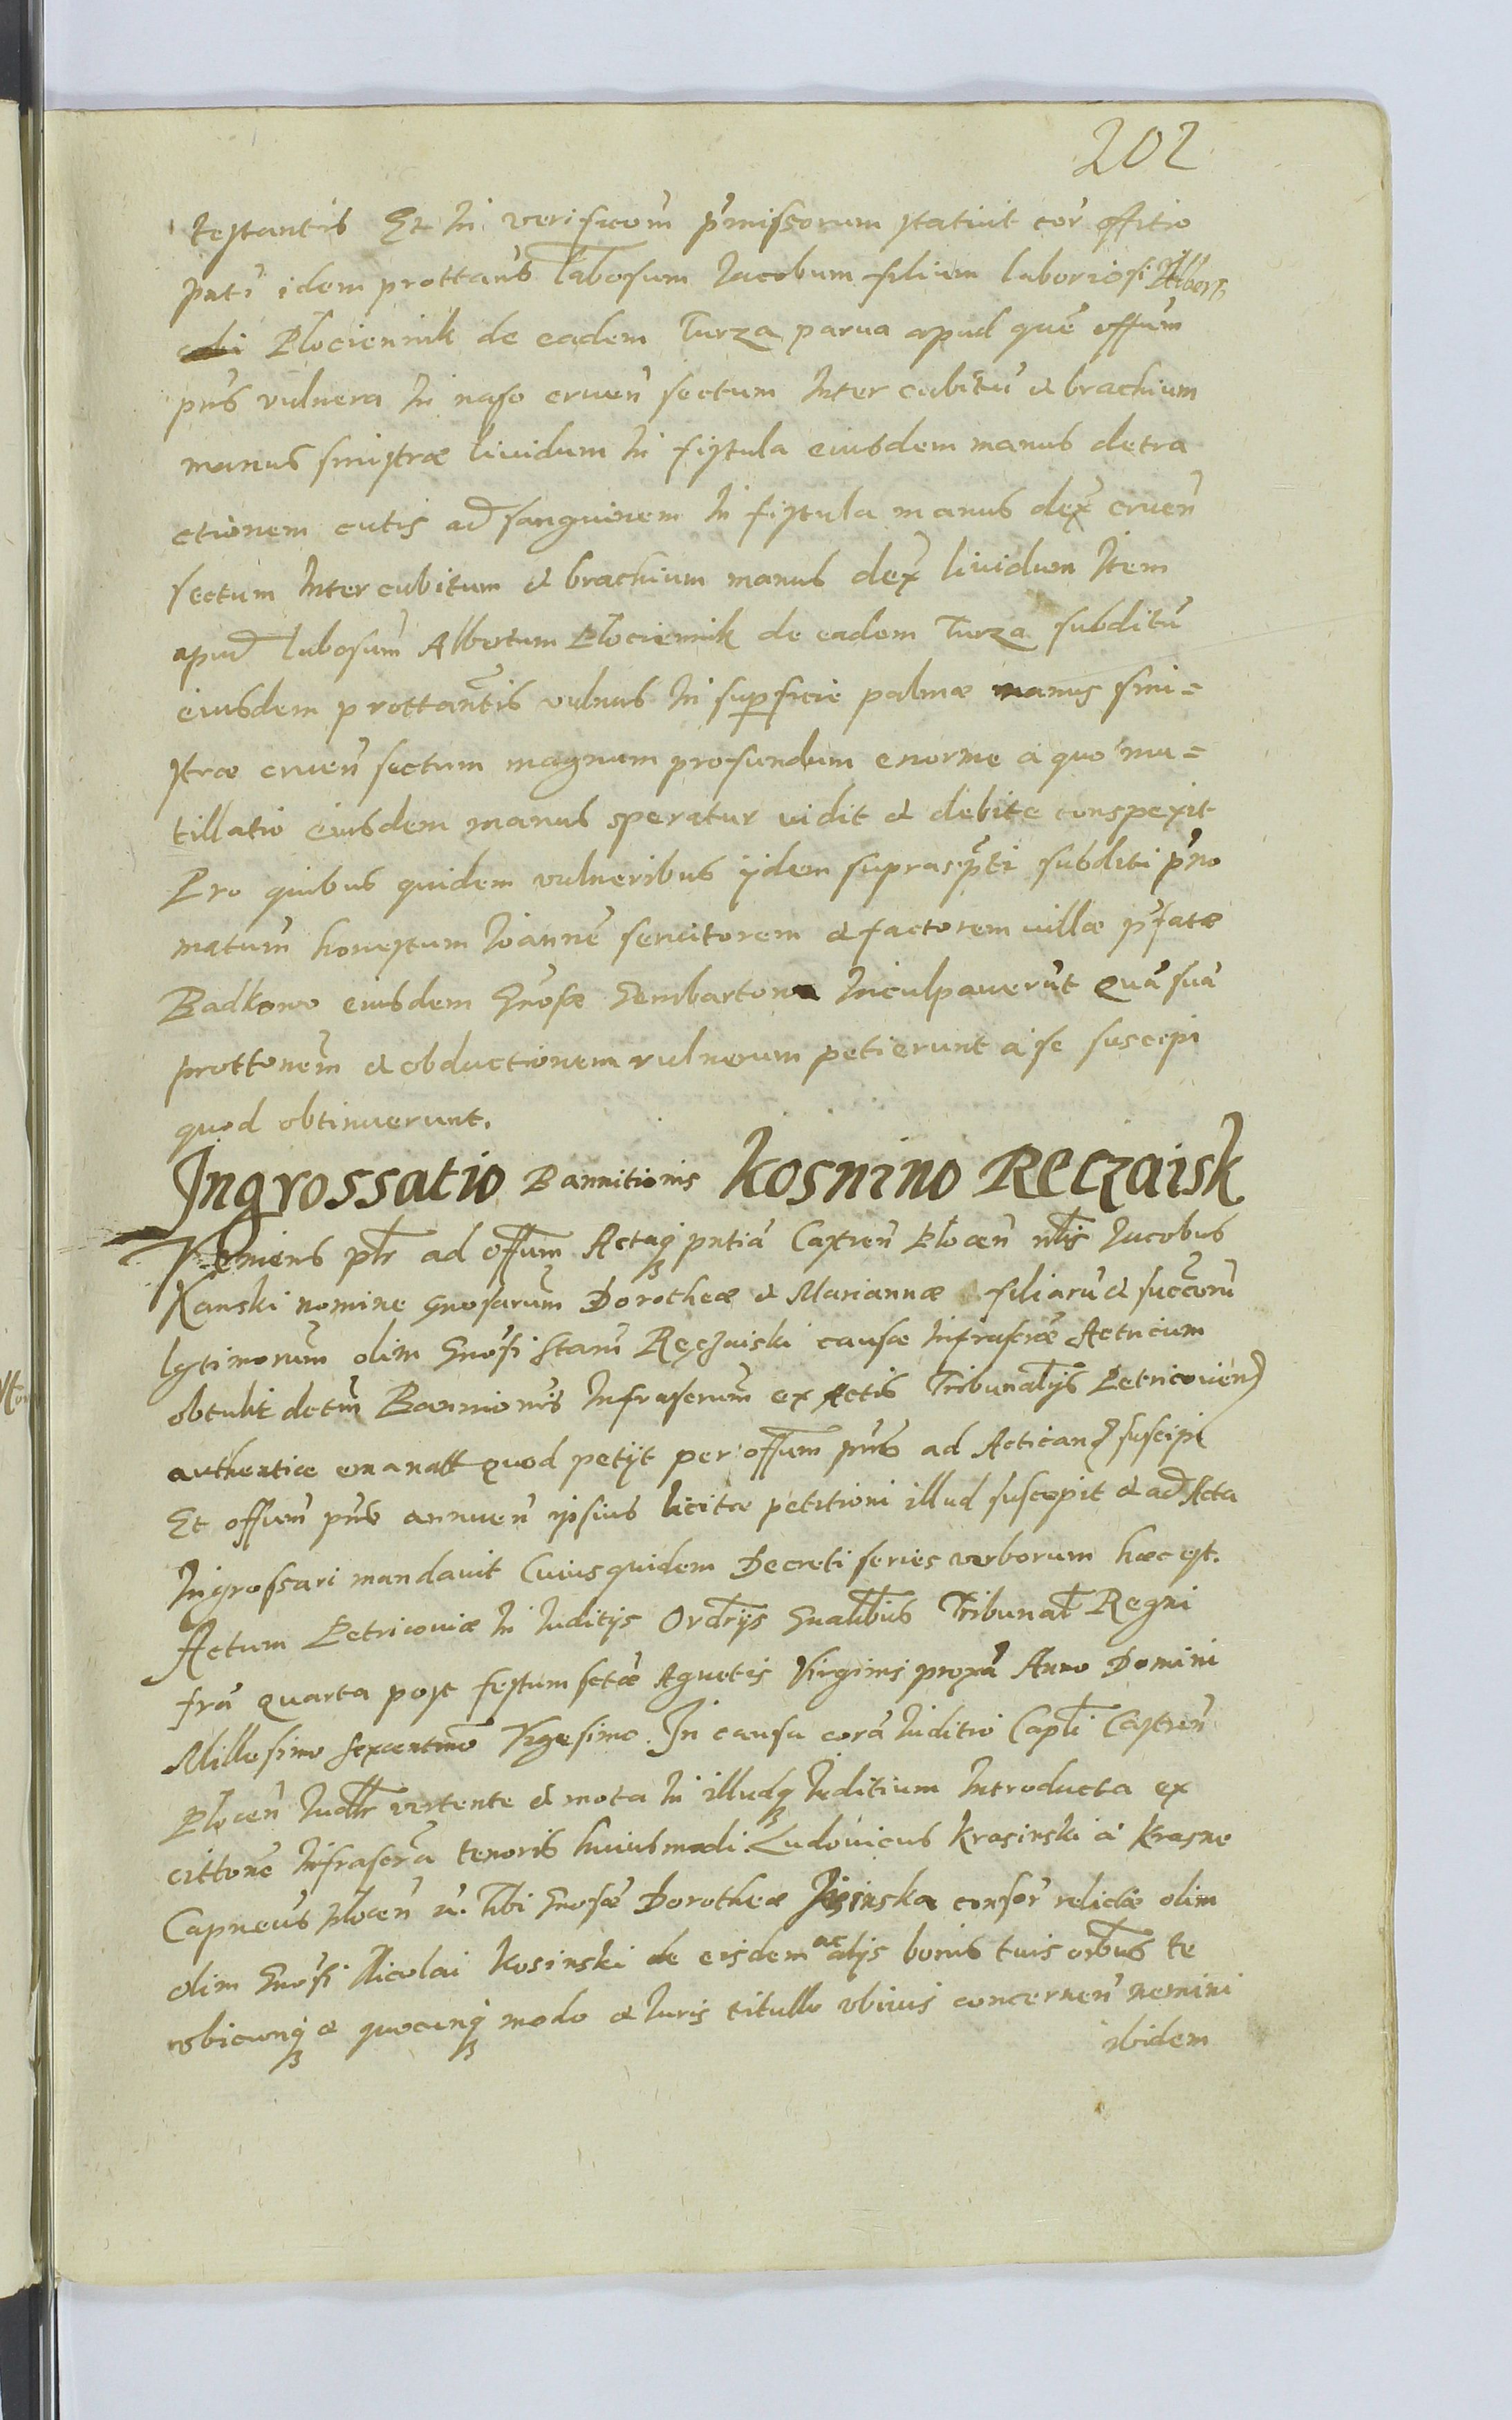 202
testantis Et in verificom pmissorum statuit cor offitio
pnti idem prottans labosum Jacobum filium laboriosi Alberti
Plociennik de eadem Turza parua apud que offum
pns vulnera in naso cruen sectum inter cubitu & brachium
manus sinistræ liuidum in fistula eiusdem manus detra
ctionem cutis ad sanguinem in fistula manus dex cruen
sectum inter cubitum & brachium manus dex liuidum Item
apud labosum Albertum Plociennik de eadem Turza subditu
eiusdem prottantis vulnus in superficie palmæ manus sini=
stræ cruen sectum magnum profundum enorme a quo mu=
tillatio eiusdem manus speratur vidit & debite conspexit
Pro quibus quidem vulneribus ijdem suprascpti subditi pno
matum honestum Joanne seruitorem & factorem villæ pfatæ
Badkowo eiusdem Gnosæ Gembartowa inculpauerut Qua sua
prottonem & obductionem vulnerum petierunt a se suscipi
quod obtinuerunt.
Ingrossatio Bannitionis Kosnino Reczaisk
Veniens ptr ad offum Actaq pntia Castren Plocen nlis Jacobus
Kanski nomine Gnosarum Dorotheæ & Mariannæ filiaru & succoru
lgtimorum olim Gnosi Stani Ręczaiski causæ infrascræ Actricum
obtulit detm Bannionis infrascrum ex Actis Tribunalijs Petricouien
authentice emanatt quod petijt per offum pns ad Acticand suscipi
Et offum pns annuen ipsius licitæ petitioni illud suscepit & ad Acta
Ingrossari mandauit Cuiusquidem Decreti series verborum hæc est.
Actum Petricouiæ in Juditijs Ordrijs Gnalibus Tribunal Regni
fra quarta post festum sctæ Agnetis Virginis proxa Anno Domini
Millesimo sexcentmo Vigesimo. In causa cora Juditio Captli Castren
Plocen Judltr vertente & mota in illudq Juditium introducta ex
cittone infrascra tenoris huiusmodi. Ludouicus Krasinski a Krasne
Capneus Plocen &. Tibi Gnosæ Dorotheæ consor relictæ olim
olim Gnosi Nicolai Kosinski de eisdem ac alijs bonis tuis oibus te
vbicunq & quocunq modo & Juris titullo vbiuis concernen nemini
ibidem